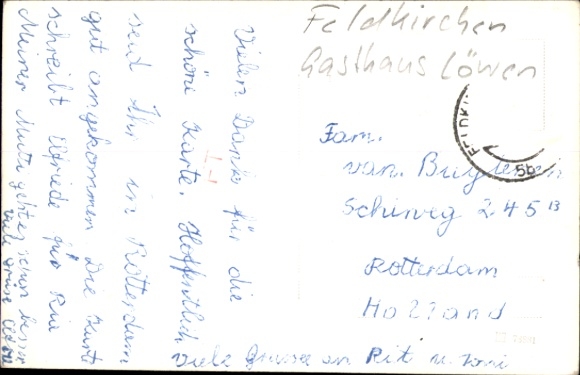 Vielen Dank für die
schöne Karte. Hoffentlich
seid Ihr in Rotterdam
gut angekommen. Die Karte
schreibt Elfriede für Ria
Meiner Mutti geht es schon besser
viele Grüsse
Viele Grüsse an Rit u. Toni
Feldkirchen
Gasthaus Löwen
Fam.
van.
Schiweg 245 13
Rotterdam
Holland
5b